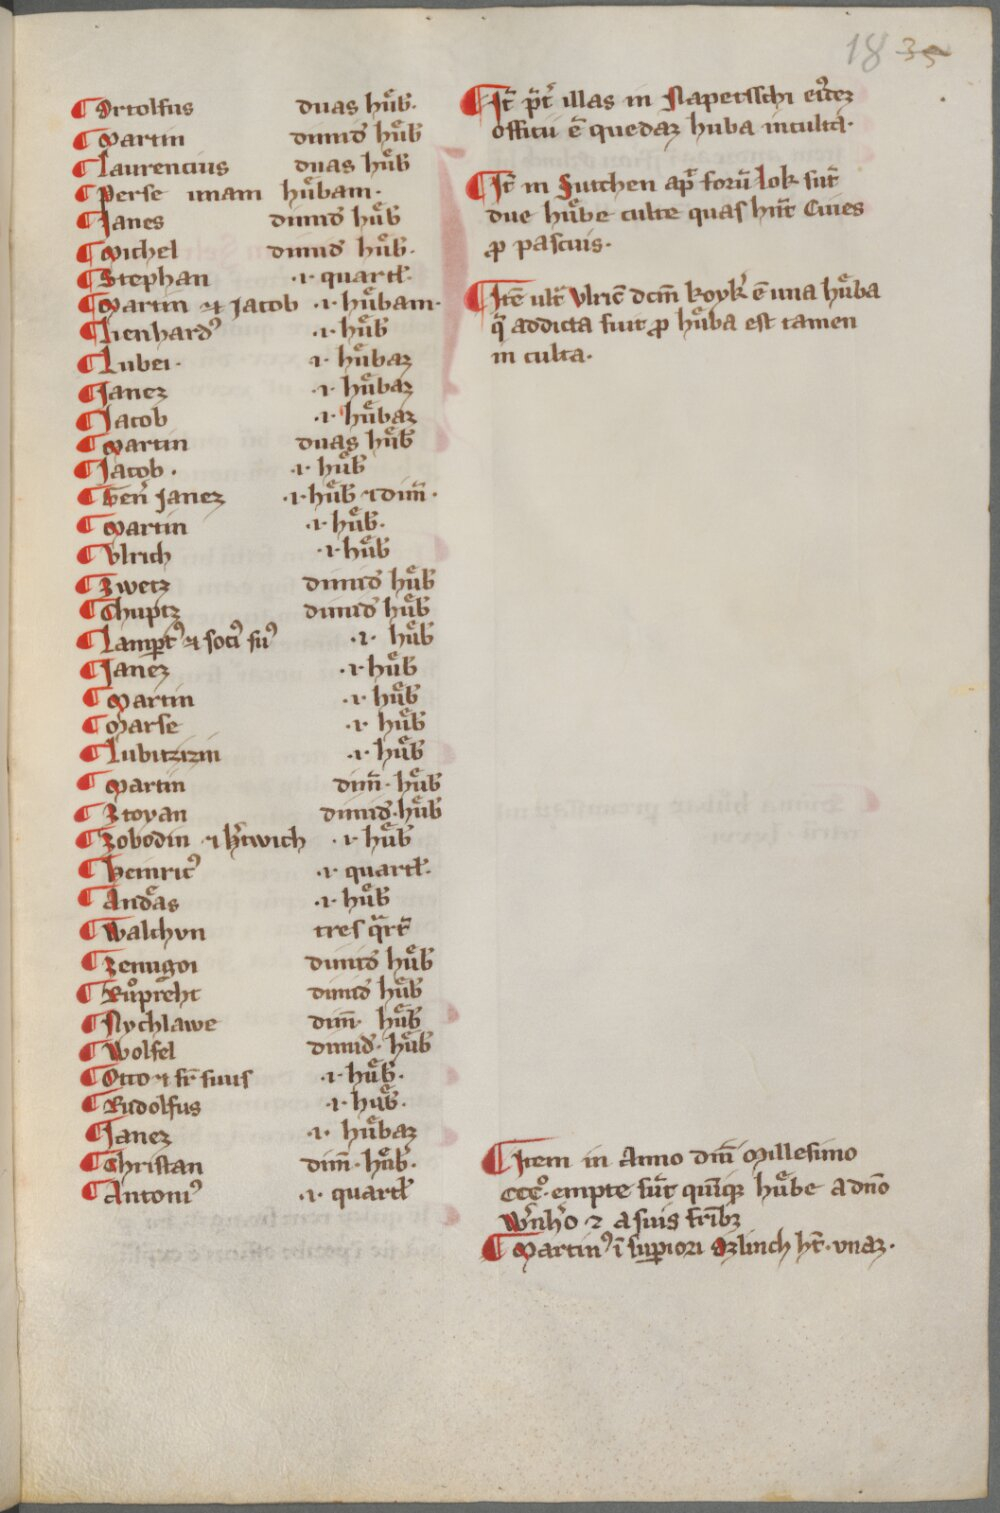 18 35
¶ Ortolfus duas hůb̄.
¶ Martin dimid̄ hůb̄
¶ Laurencius duas hůb̄
¶ Perse unam hůbam.
¶ Janes dimid̄ hůb̄
¶ Michel dimid̄ hůb̄.
¶ Stephan .ı. quartl̄.
¶ Martin et Jacob .ı. hůbam.
¶ Lienhardꝰ .ı. hůb̄
¶ Lubei. .ı. hůbaꝫ
¶ Janeꝫ .ı. hůbaꝫ
¶ Jacob .ı. hůbaꝫ
¶ Martin duas hůb̄
¶ Jacob. .ı. hůb̄
¶ Gen̄ Janeꝫ .ı. hůb̄ et dim̄.
¶ Martin .ı. hůb̄.
¶ Vlrich .ı. hůb̄
¶ Zwetz dimid̄ hůb̄
¶ Chuptz dimid̄ hůb̄
¶ Lamp̄tꝰ et socꝰ suꝰ .ı. hůb̄
¶ Janeꝫ .ı. hůb̄
¶ Martin .ı. hůb̄
¶ Marse .ı. hůb̄
¶ Lubitzizin .ı. hůb̄
¶ Martin dim̄. hůb̄
¶ Ztoyan dimid̄. hůb̄
¶ Zobodin et h̄twich .ı. hůb̄
¶ Heinricꝰ .ı. quartl̄.
¶ Andͤas .ı. hůb̄
¶ Walchvn tres q̄rt̄
¶ Zemigoi dimid̄ hůb̄
¶ Růpreht dimid̄ hůb̄
¶ Nychlawe dim̄. hůb̄
¶ Wolfel dimid̄. hůb̄
¶ Otto et fr̄ suus .ı. hůb̄.
¶ Rudolfus .ı. hůb̄.
¶ Janeꝫ .ı. hůbaꝫ
¶ Christan dim̄. hůb̄.
¶ Antoniꝰ .ı. quartl̄
¶ It̄ p̄t̄ illas in Napetsschi
officii ē quedaꝫ huba inculta.
¶ It̄ in Sutchen ap̄ forū Lok sūt
due hůbe culte quas hn̄t Ciues
ꝓ pascuis.
¶ Itē ult̄ Vlric̄ dc̄m koyk̄ ē una hůba
q̄ addicta fuit ꝓ hůba est tamen
in culta.
¶ Item in Anno dm̄ Millesimo
cccͦ. empte sūt quīqꝫ hůbe a dn̄o
w̄nh̄o et a suis fr̄ibꝫ
¶ Martinꝰ ī suꝑiori Ozlinch ht̄. vnaꝫ.